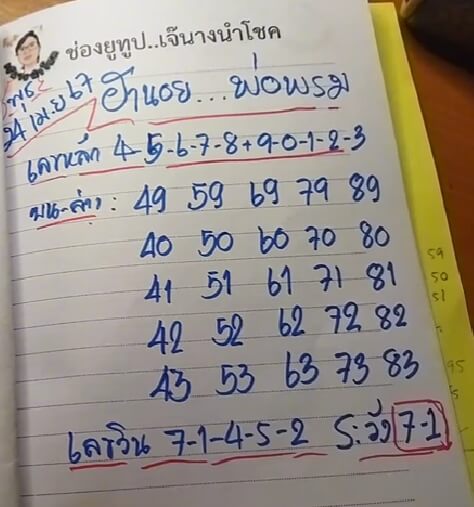 ช่องยูทูป..เจ๊นางนำโชค
พุธ
24 เม.ย 67
ฮานอย...พ่อพรม
เลขหลัก 4-5-6-7-8+9-0-1-2-3
บน-ล่าง : 49 59 69 79 89
40 50 60 70 80
41 51 61 71 81
42 52 62 72 82
43 53 63 73 83
เลขวิน 7-1-4-5-2 ระวัง 7-1
59
50
51
95